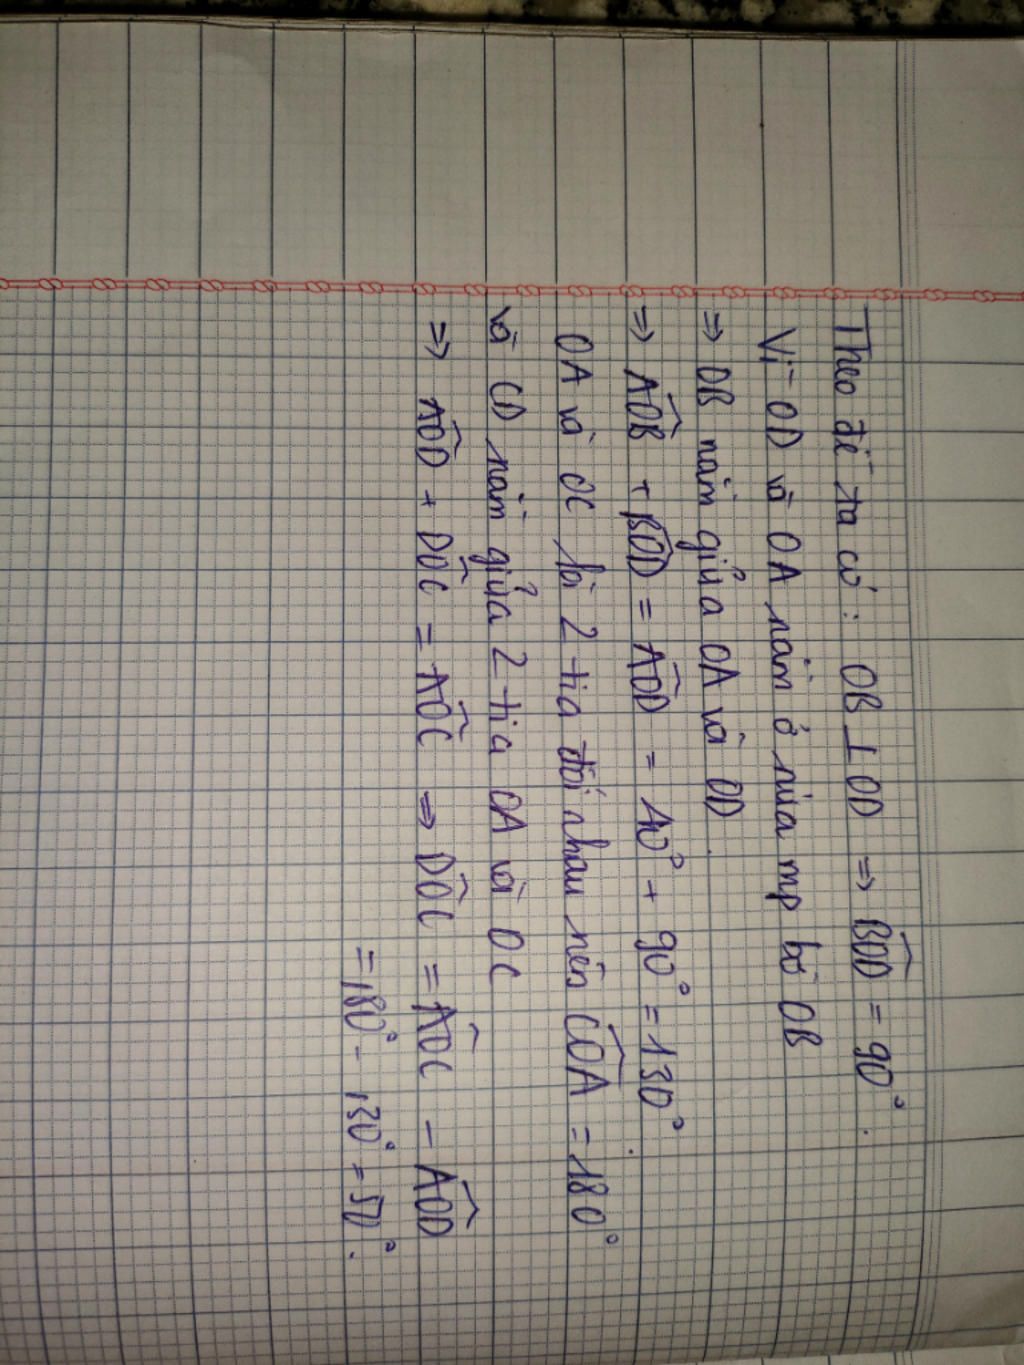 Theo đề ta có: OB ⊥ OD ⇒ BOD̂ = 90°.
Vì OD và OA nằm ở nửa mp bờ OB
⇒ OB nằm giữa OA và OD.
⇒ AOB̂ + BOD̂ = AOD̂ = 40° + 90° = 130°.
OA và OC là 2 tia đối nhau nên COÂ = 180°
và CD nằm giữa 2 tia OA và OC
⇒ AOD̂ + DOĈ = AOĈ ⇒ DOĈ = AOĈ - AOD̂
= 180° - 130° = 50°.